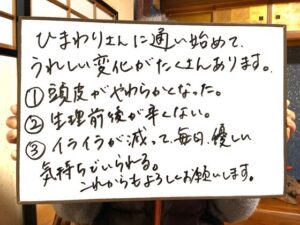 ひまわりさんに通い始めて、
うれしい変化がたくさんあります。
①頭皮がやわらかくなった。
②生理前後が辛くない。
③イライラが減って、毎日、優しい
気持ちでいられる。
これからもよろしくお願いします。